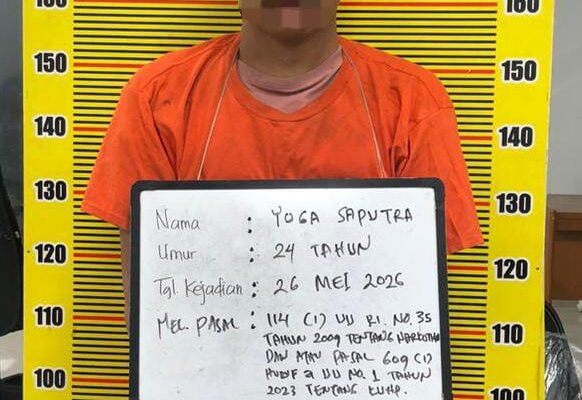 160 160
150 150
140 140
130 130
120 120
110 110
100 100
Nama : YOGA SAPUTRA
Umur : 24 TAHUN
Tgl. Kejadian : 26 MEI 2026
MEL. PASAL : 114 (1) UU RI. NO. 35
TAHUN 2009 TENTANG NARKOTIKA
DAN ATAU PASAL 609 (1)
HURUF a UU NO. 1 TAHUN
2023 TENTANG KUHP.